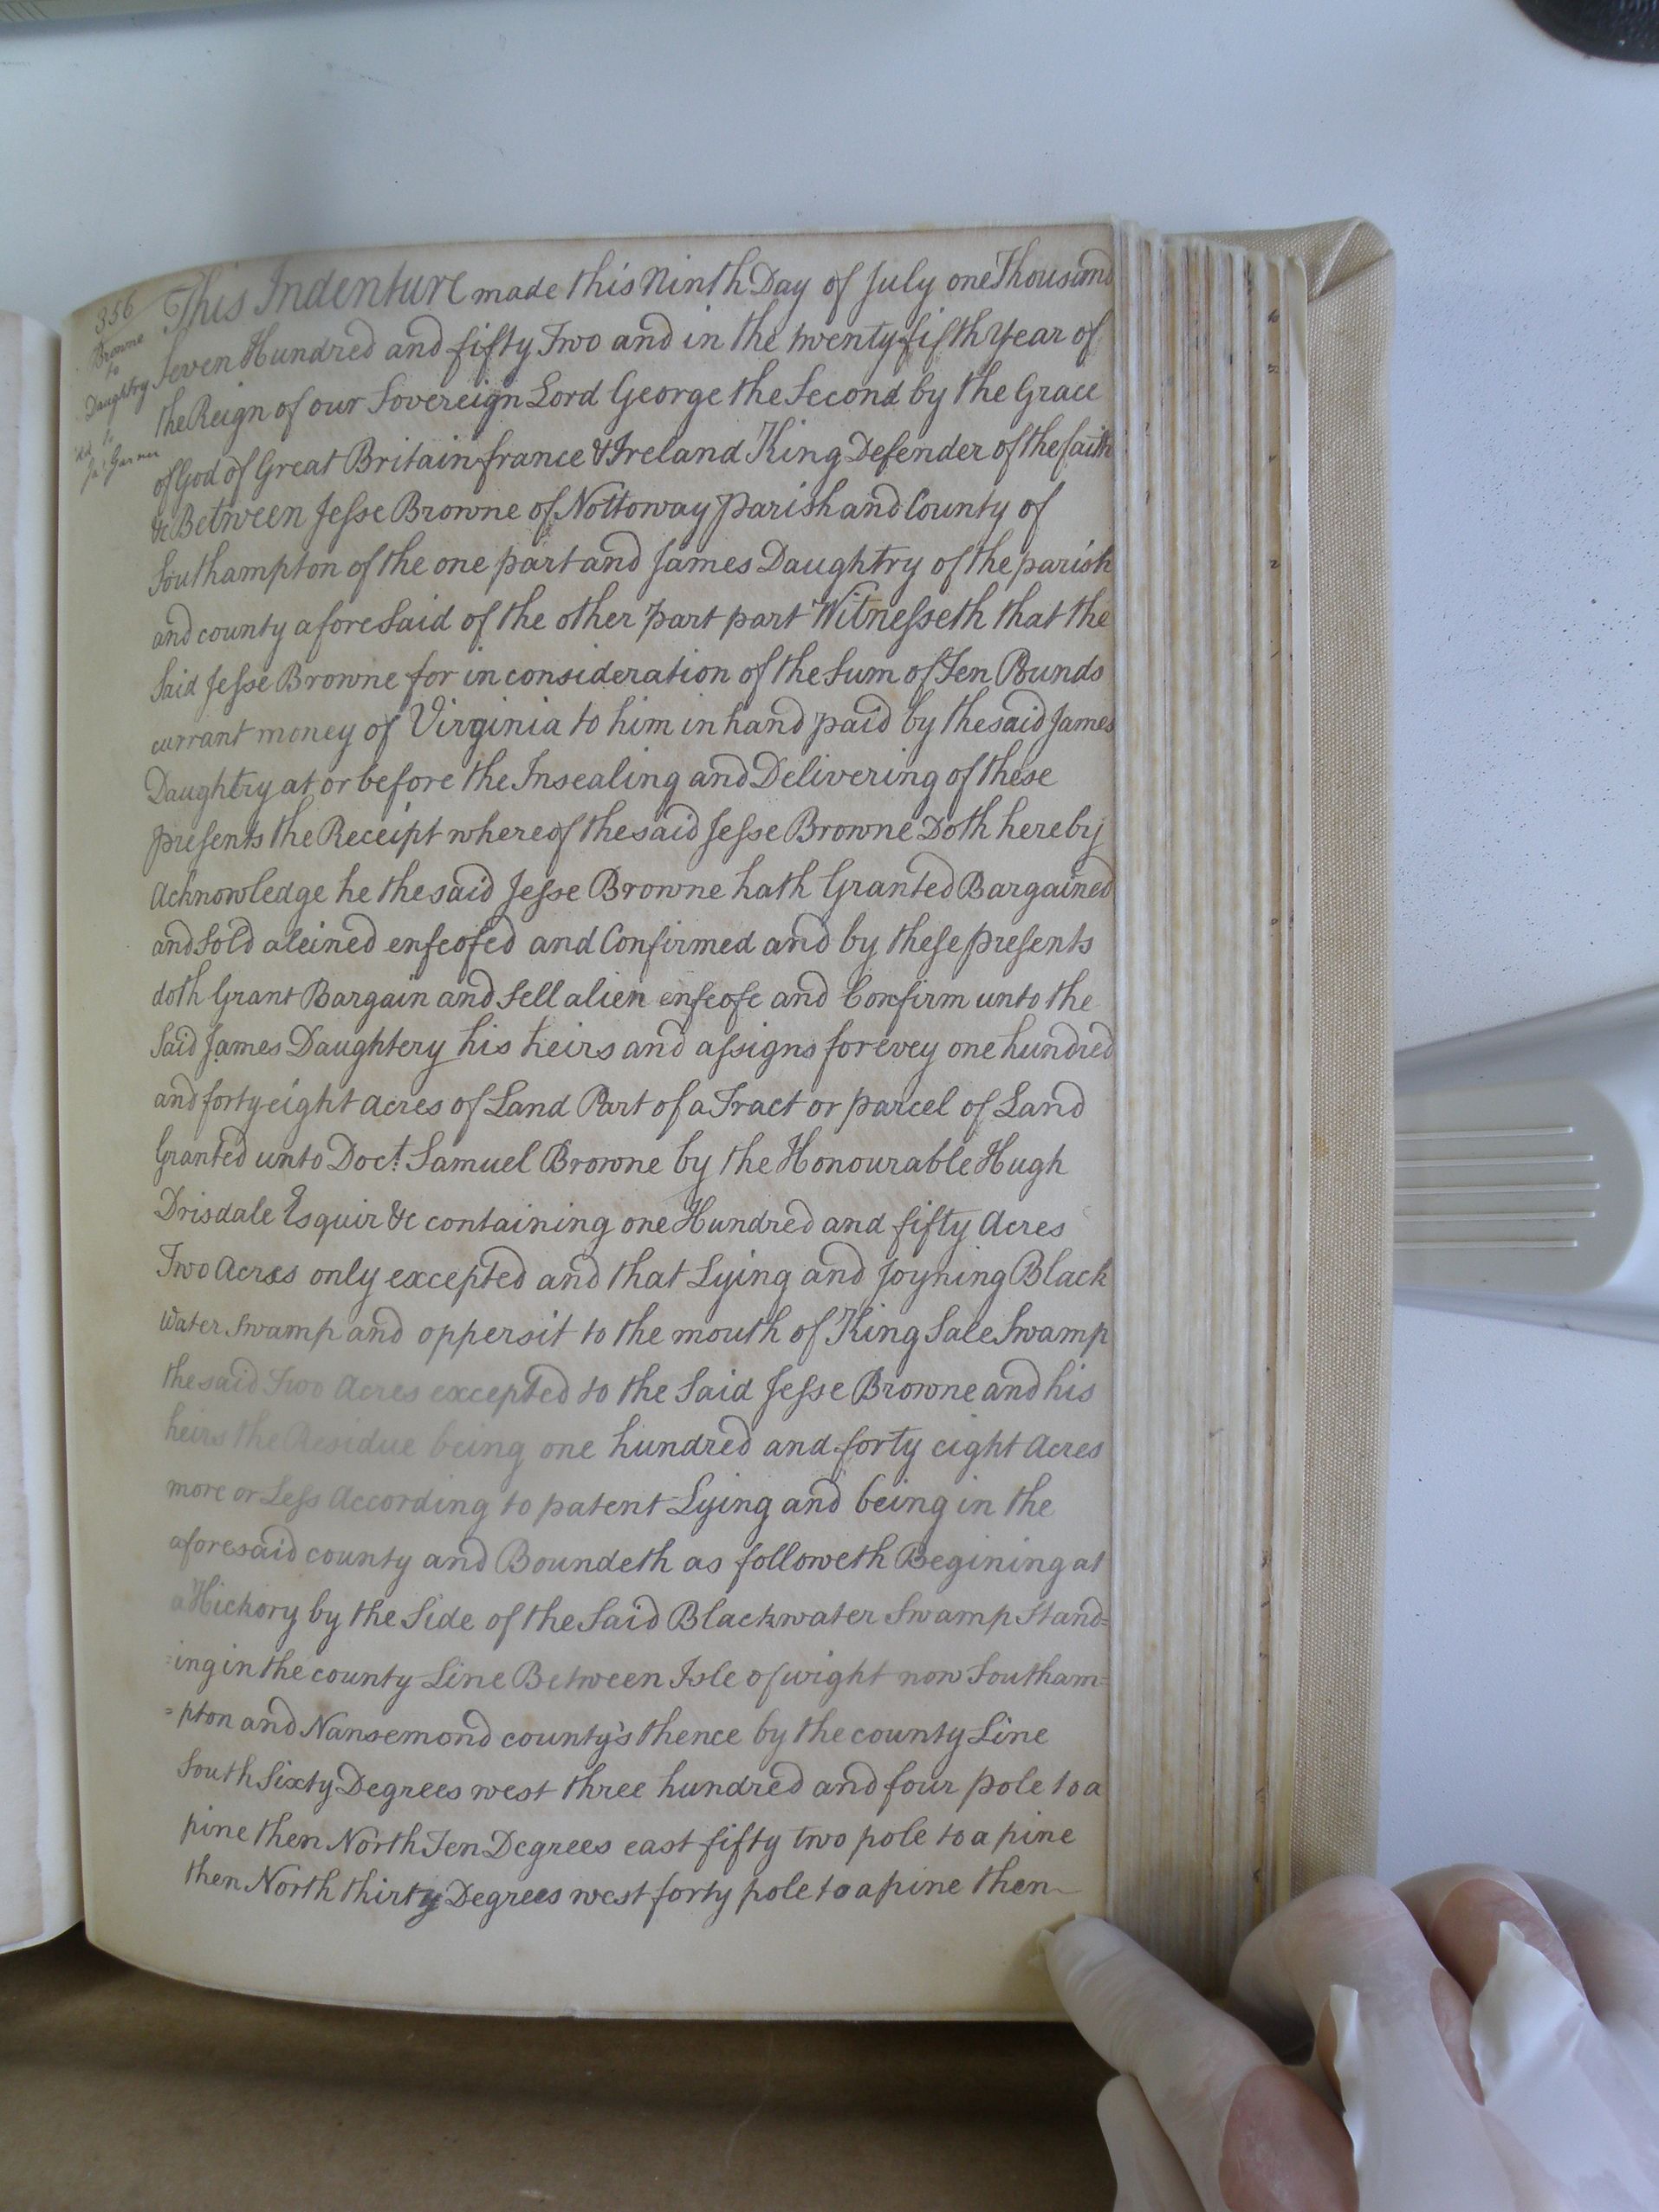 356
Browne
to
Daughtry
dd to
Jas Garner
This Indenture made this Ninth Day of July one Thousand
Seven Hundred and fifty Two and in the twenty fifth Year of
the Reign of our Sovereign Lord George the Second by the Grace
of God of Great Britain france & Ireland King Defender of the faith
&c Between Jesse Browne of Nottoway parish and County of
Southampton of the one part and James Daughtry of the parish
and county aforesaid of the other part part Witnesseth that the
Said Jesse Browne for in consideration of the Sum of Ten Pounds
currant money of Virginia to him in hand paid by the said James
Daughtry at or before the Insealing and Delivering of these
presents the Receipt whereof the said Jesse Browne Doth hereby
Acknowledge he the said Jesse Browne hath Granted Bargained
and Sold aleined enfeofed and Confirmed and by these presents
doth Grant Bargain and Sell alien enfeofe and Confirm unto the
Said James Daughtery his heirs and assigns forevey one hundred
and forty eight acres of Land Part of a Tract or parcel of Land
Granted unto Doct. Samuel Browne by the Honourable Hugh
Drisdale Esquir &c containing one Hundred and fifty Acres
Two Acres only excepted and that Lying and Joyning Black
Water Swamp and oppersit to the mouth of King Sale Swamp
the said Two Acres excepted to the Said Jesse Browne and his
heirs the Residue being one hundred and forty eight Acres
more or Less According to patent Lying and being in the
aforesaid county and Boundeth as followeth Begining at
a Hickory by the Side of the Said Blackwater Swamp Stand=
=ing in the county Line Between Isle of wight now Southam=
=pton and Nansemond county's thence by the county Line
South Sixty Degrees west three hundred and four pole to a
pine then North Ten Degrees east fifty two pole to a pine
then North thirty Degrees west forty pole to a pine then